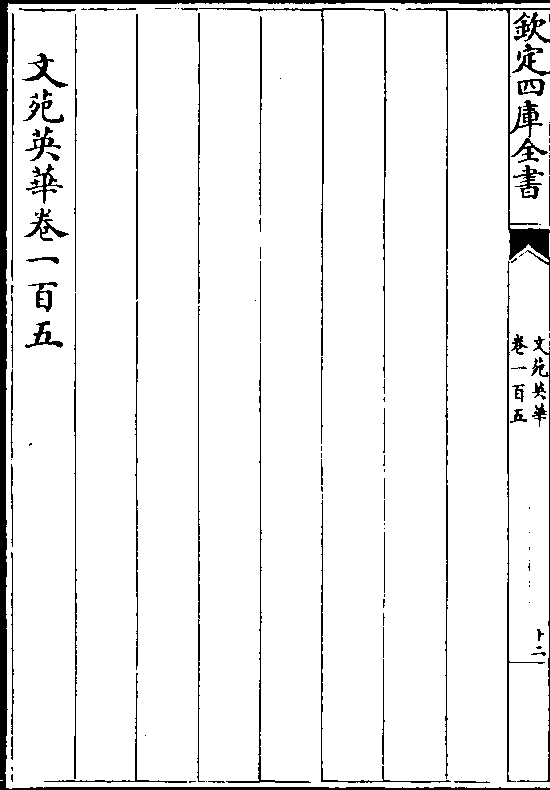 欽定四庫全書
文苑英華
卷一百五
十二
文苑英華卷一百五